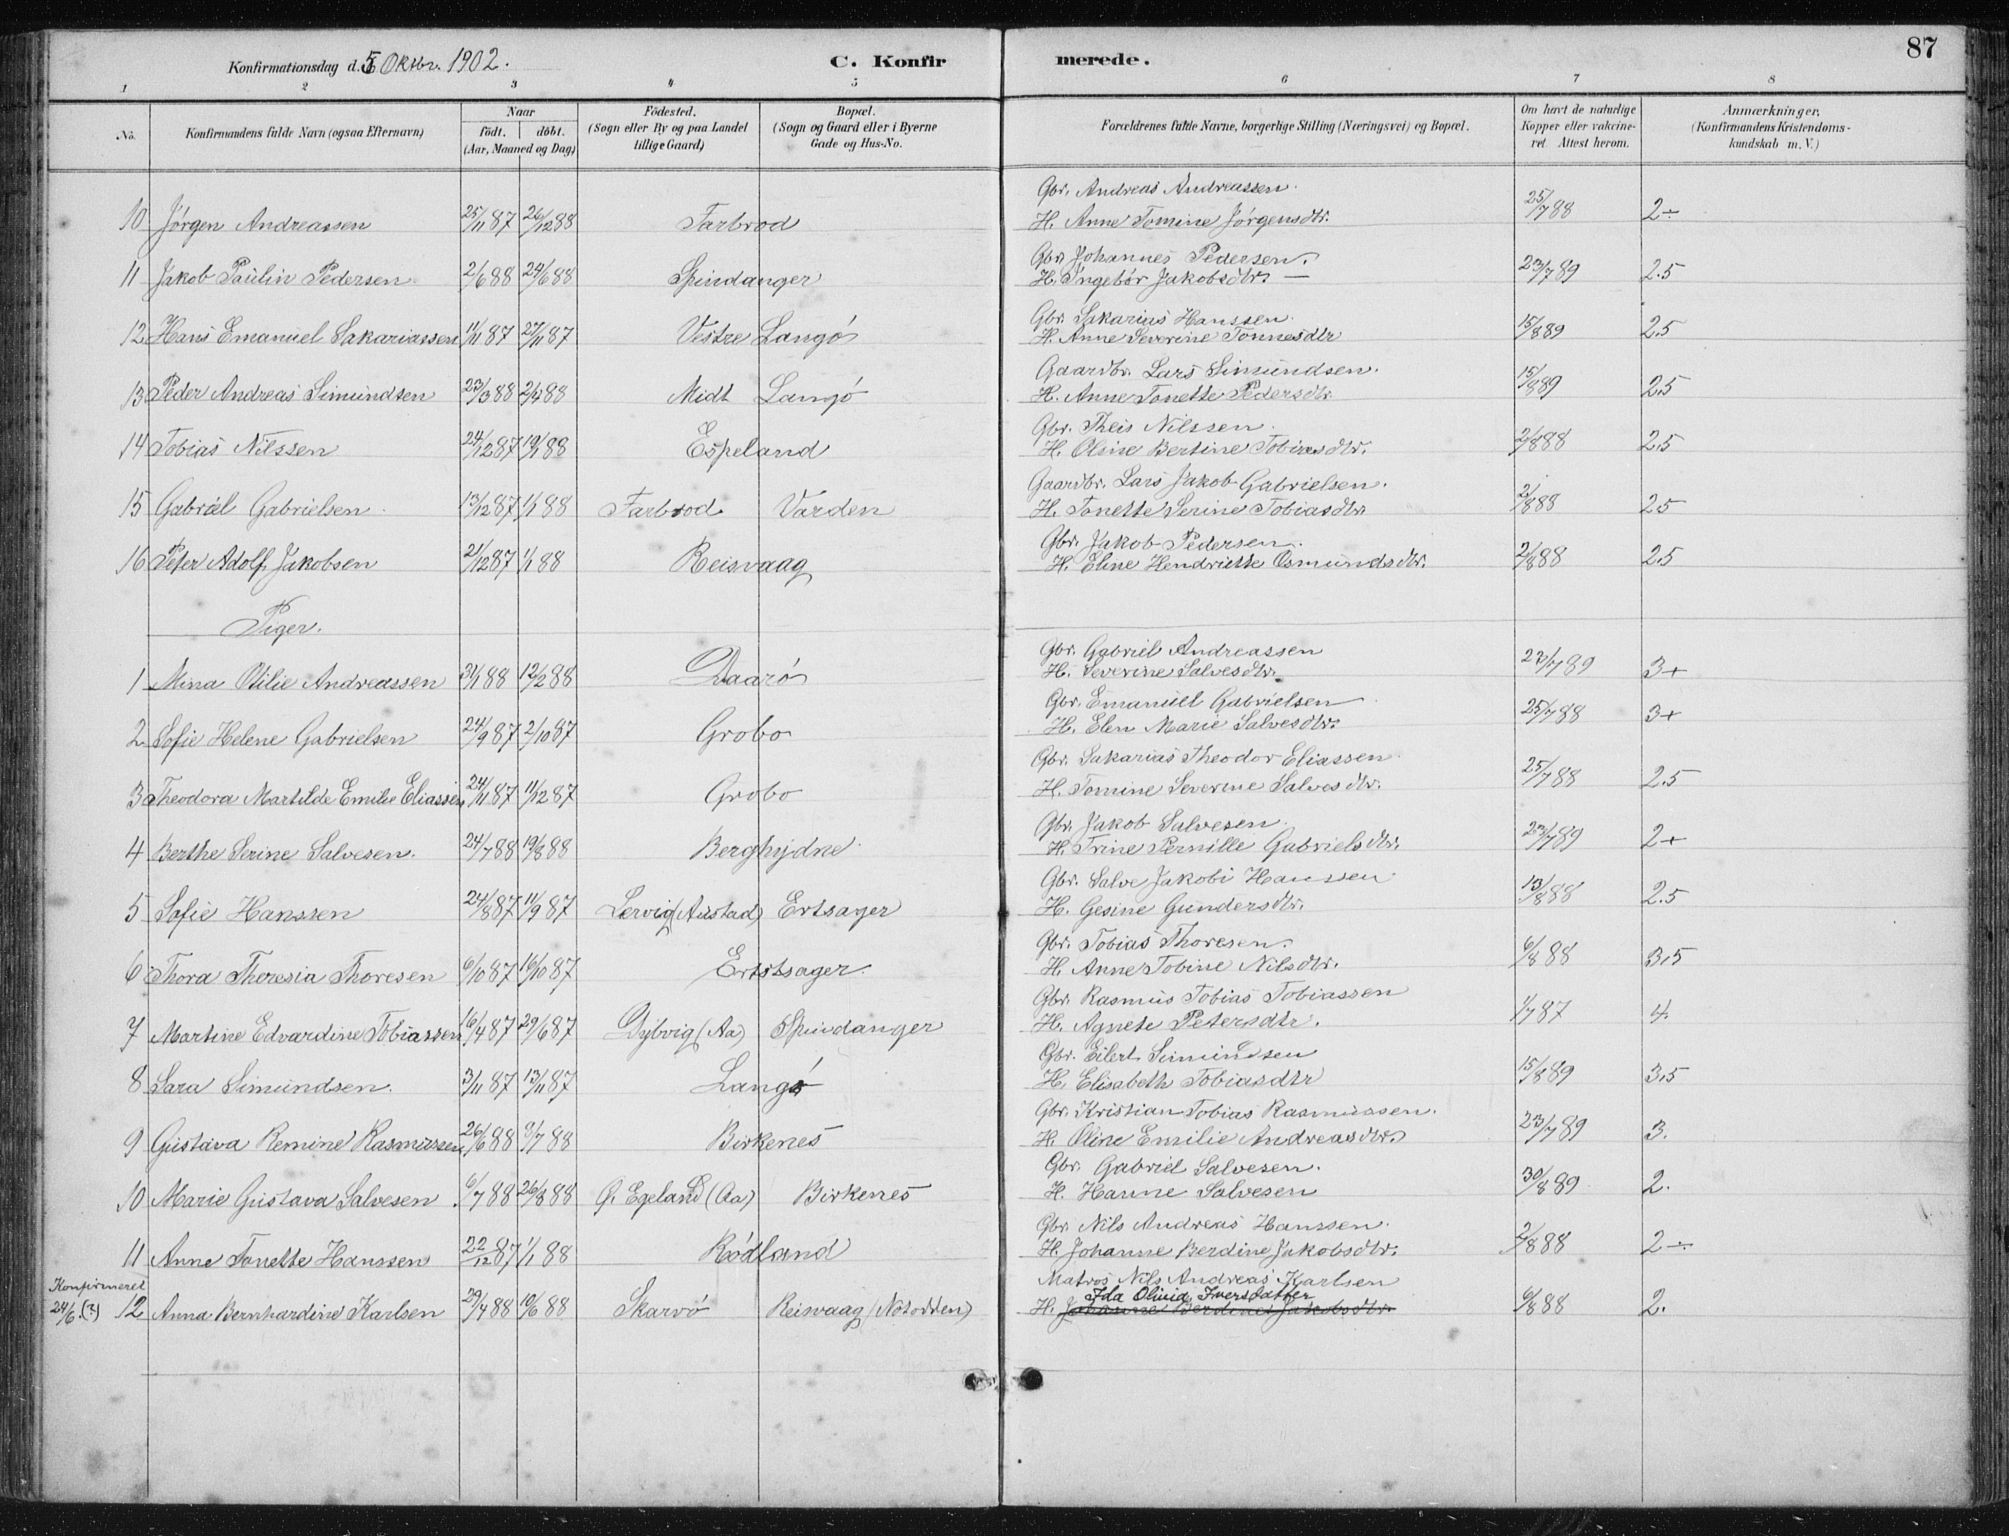 87
Konfirmationsdag d. 5 Oktbr. 1902. C. Konfirmerede.
1 2 3 4 5 6 7 8
No. Konfirmandens fulde Navn (ogsaa Efternavn) Naar født. døbt. (Aar, Maaned og Dag) Fødested. (Sogn eller By og paa Landet tillige Gaard) Bopæl. (Sogn og Gaard eller i Byerne Gade og Hus-No. Forældrenes fulde Navne, borgerlige Stilling (Næringsvei) og Bopæl. Om havt de naturlige Kopper eller vakcineret. Attest herom. Anmærkninger. (Konfirmandens Kristendomskundskab m. V.)
Gbr. Andreas Andreassen.
10 Jørgen Andreassen 25/11 87 26/12 88 Farbrod H. Anne Tomine Jørgensdtr. 25/7 88 2÷
Gbr. Johannes Pedersen.
11 Jakob Paulin Pedersen 2/6 88 24/6 88 Spindanger H. Ingebør Jakobsdtr. — 23/7 89 2.5
Gbr. Sakarias Hanssen.
12 Hans Emanuel Sakariassen 11/11 87 27/11 87 Vestre Langø H. Anne Severine Tønnesdtr 15/8 89 2.5
Gaardbr. Lars Simundsen.
13 Peder Andreas Simundsen 23/3 88 2/4 88 Midt Langø H. Anne Tonette Pedersdtr 15/8 89 2.5
Gbr. Theis Nilssen.
14 Tobias Nilssen 24/12 87 19/1 88 Espeland H. Olsine Bertine Tobiasdtr. 2/8 88 2.5
Gaardbr. Lars Jakob Gabrielsen.
15 Gabriel Gabrielsen 13/12 87 1/1 88 Farbrod Varden H. Tonette Serine Tobiasdtr 2/8 88 2.5
Gbr. Jakob Pedersen.
16 Peter Adolf Jakobsen 21/12 87 1/1 88 Reisvaag H. Eline Hendriette Osmundsdtr. 2/8 88 2.5
Piger.
Gbr. Gabriel Andreassen
1 Mina Otilie Andreassen 31/1 88 12/2 88 Daarø H. Severine Salvesdtr. 23/7 89 3+
Gbr. Emanuel Gabrielsen
2 Sofie Helene Gabrielsen 24/9 87 2/10 87 Grobo H. Elen Marie Salvesdtr. 25/7 88 3+
Gbr. Sakarias Theodor Eliassen
3 Theodora Martilde Emilie Eliassen 24/11 87 11/12 87 Grobo H. Tomine Severine Salvesdtr. 25/7 88 2.5
Gbr. Jakob Salvesen.
4 Berthe Serine Salvesen. 24/7 88 19/8 88 Berghydne H. Trine Pernille Gabrielsdtr. 23/7 89 2+
Gbr. Salve Jakobi Hanssen
5 Sofie Hanssen 24/8 87 11/9 87 Lervig (Austad) Ertsager H. Gesine Gundersdtr. 13/8 88 2.5
Gbr. Tobias Thoresen.
6 Thora Theresia Thoresen 6/10 87 16/10 87 Ertstsager H. Anne Tobine Nilsdtr. 6/8 88 3.5
Gbr. Rasmus Tobias Tobiassen
7 Martine Edvardine Tobiassen 16/4 87 29/6 87 Dybvig (Aa) Spindanger H. Agnete Petersdtr. 1/7 87 4
Gbr. Eilert Simundsen
8 Sara Simundsen. 3/11 87 13/11 87 Langø H. Elisabeth Tobiasdtr 15/8 89 3.5
Gbr. Kristian Tobias Rasmussen.
9 Gustava Remine Rasmussen 26/6 88 9/7 88 Birkenes H. Oline Emilie Andreasdtr. 23/7 89 3.
Gbr. Gabriel Salvesen.
10 Marie Gustava Salvesen. 6/7 88 26/8 88 Ø. Egeland (Aa) Birkenes H. Hanne Salvesen 30/8 89 2.
Gbr. Nils Andreas Hanssen.
11 Anne Tonette Hanssen 22/12 87 1/1 88 Rødland H. Johanne Berdine Jakobsdtr. 2/8 88 2÷
Konfirmeret Matros Nils Andreas Karlsen
Ida Olivia Iversdatter
24/6. (3) 12 Anna Bernhardine Karlsen 29/4 88 10/6 88 Skarvø Reisvaag (Notodden) H. Johanne Berdine Jakobsdtr 6/8 88 2.